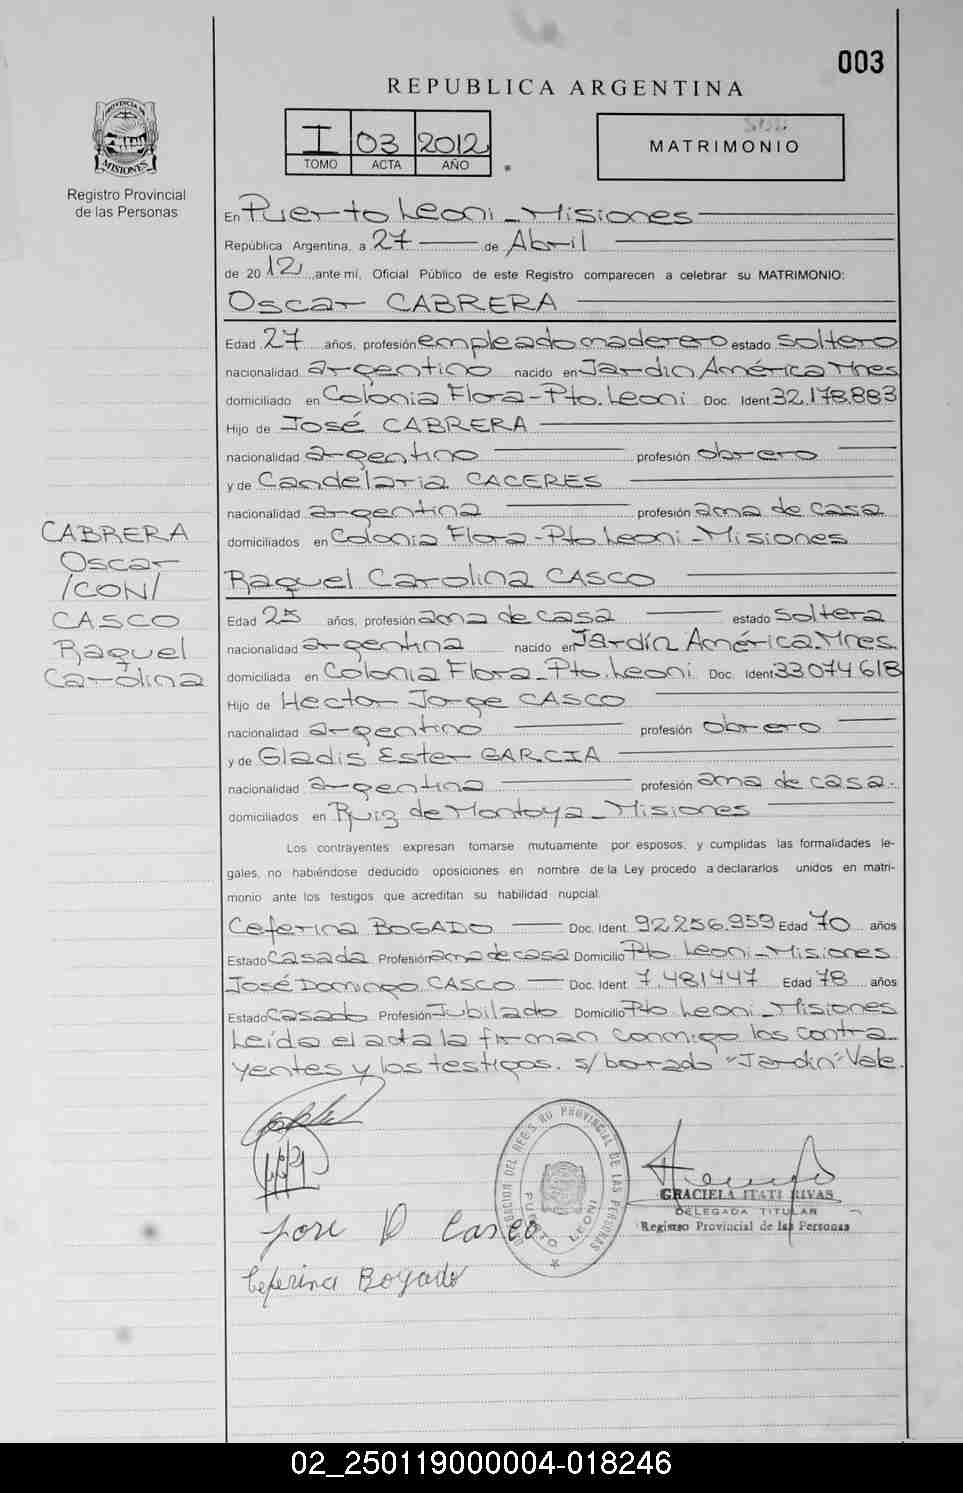 003
REPUBLICA ARGENTINA
PROVINCIA DE
MISIONES
Registro Provincial
de las Personas
I 03 2012
TOMO ACTA AÑO
MATRIMONIO
En Puerto Leoni - Misiones
República Argentina, a 27 de Abril
de 2012, ante mí, Oficial Público de este Registro comparecen a celebrar su MATRIMONIO:
Oscar CABRERA
Edad 27 años, profesión empleado maderero estado soltero
nacionalidad argentino nacido en Jardín América Mnes
domiciliado en Colonia Flora - Pto. Leoni Doc. Ident 32.178.883
Hijo de José CABRERA
nacionalidad argentino profesión obrero
y de Candelaria CACERES
nacionalidad argentina profesión ama de casa
domiciliados en Colonia Flora - Pto Leoni - Misiones
CABRERA
Oscar
/CON/
CASCO
Raquel
Carolina
Raquel Carolina CASCO
Edad 25 años, profesión ama de casa estado soltera
nacionalidad argentina nacido en Jardín América. Mnes.
domiciliada en Colonia Flora - Pto. Leoni. Doc. Ident 33074618
Hijo de Hector Jorge CASCO
nacionalidad argentino profesión obrero
y de Gladis Ester GARCIA
nacionalidad argentina profesión ama de casa.
domiciliados en Ruiz de Montoya - Misiones
Los contrayentes expresan tomarse mutuamente por esposos, y cumplidas las formalidades le-
gales, no habiéndose deducido oposiciones en nombre de la Ley procedo a declararlos unidos en matri-
monio ante los testigos que acreditan su habilidad nupcial.
Ceferina BOGADO Doc. Ident. 92.256.959 Edad 70 años
Estado casada Profesión ama de casa Domicilio Pto Leoni - Misiones
José Domingo CASCO Doc. Ident. 7.481447 Edad 78 años
Estado casado Profesión Jubilado Domicilio Pto Leoni - Misiones
Leída el acta la firman conmigo los contra
yentes y los testigos. s/borrado "Jardín" Vale.
PROVINCIAL DE LAS PERSONAS
PUERTO LEONI
GRACIELA ITATI RIVAS
DELEGADA TITULAR
Registro Provincial de las Personas
José D Casco
Ceferina Bogado
02_250119000004-018246